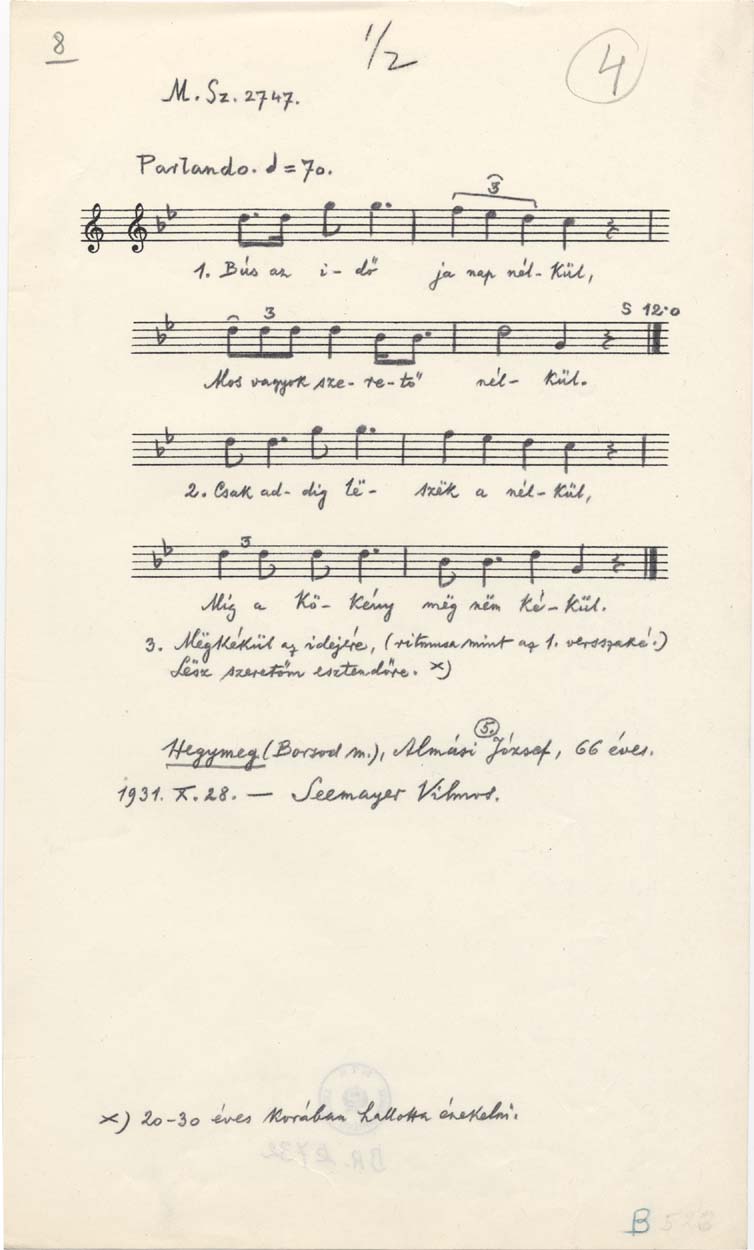 8
1/2
4
M. Sz. 2747.
Parlando. d = 70.
3
1. Bús az i- dő ja nap nél- kül,
3
S 12·0
Mos vagyok sze- re- tő nél- kül.
2. Csak ad- dig lë- szëk a nél- kül,
3
Míg a kö- kény mëg nëm ké- kül.
3. Mëgkékül az idejére, (ritmusa mint az 1. versszaké.)
Lësz szeretőm esztendőre. x)
5.
Hegymeg (Borsod m.), Almási József, 66 éves.
1931. X. 28. — Seemayer Vilmos.
x) 20-30 éves korában hallotta énekelni.
BR. 2732
B 528